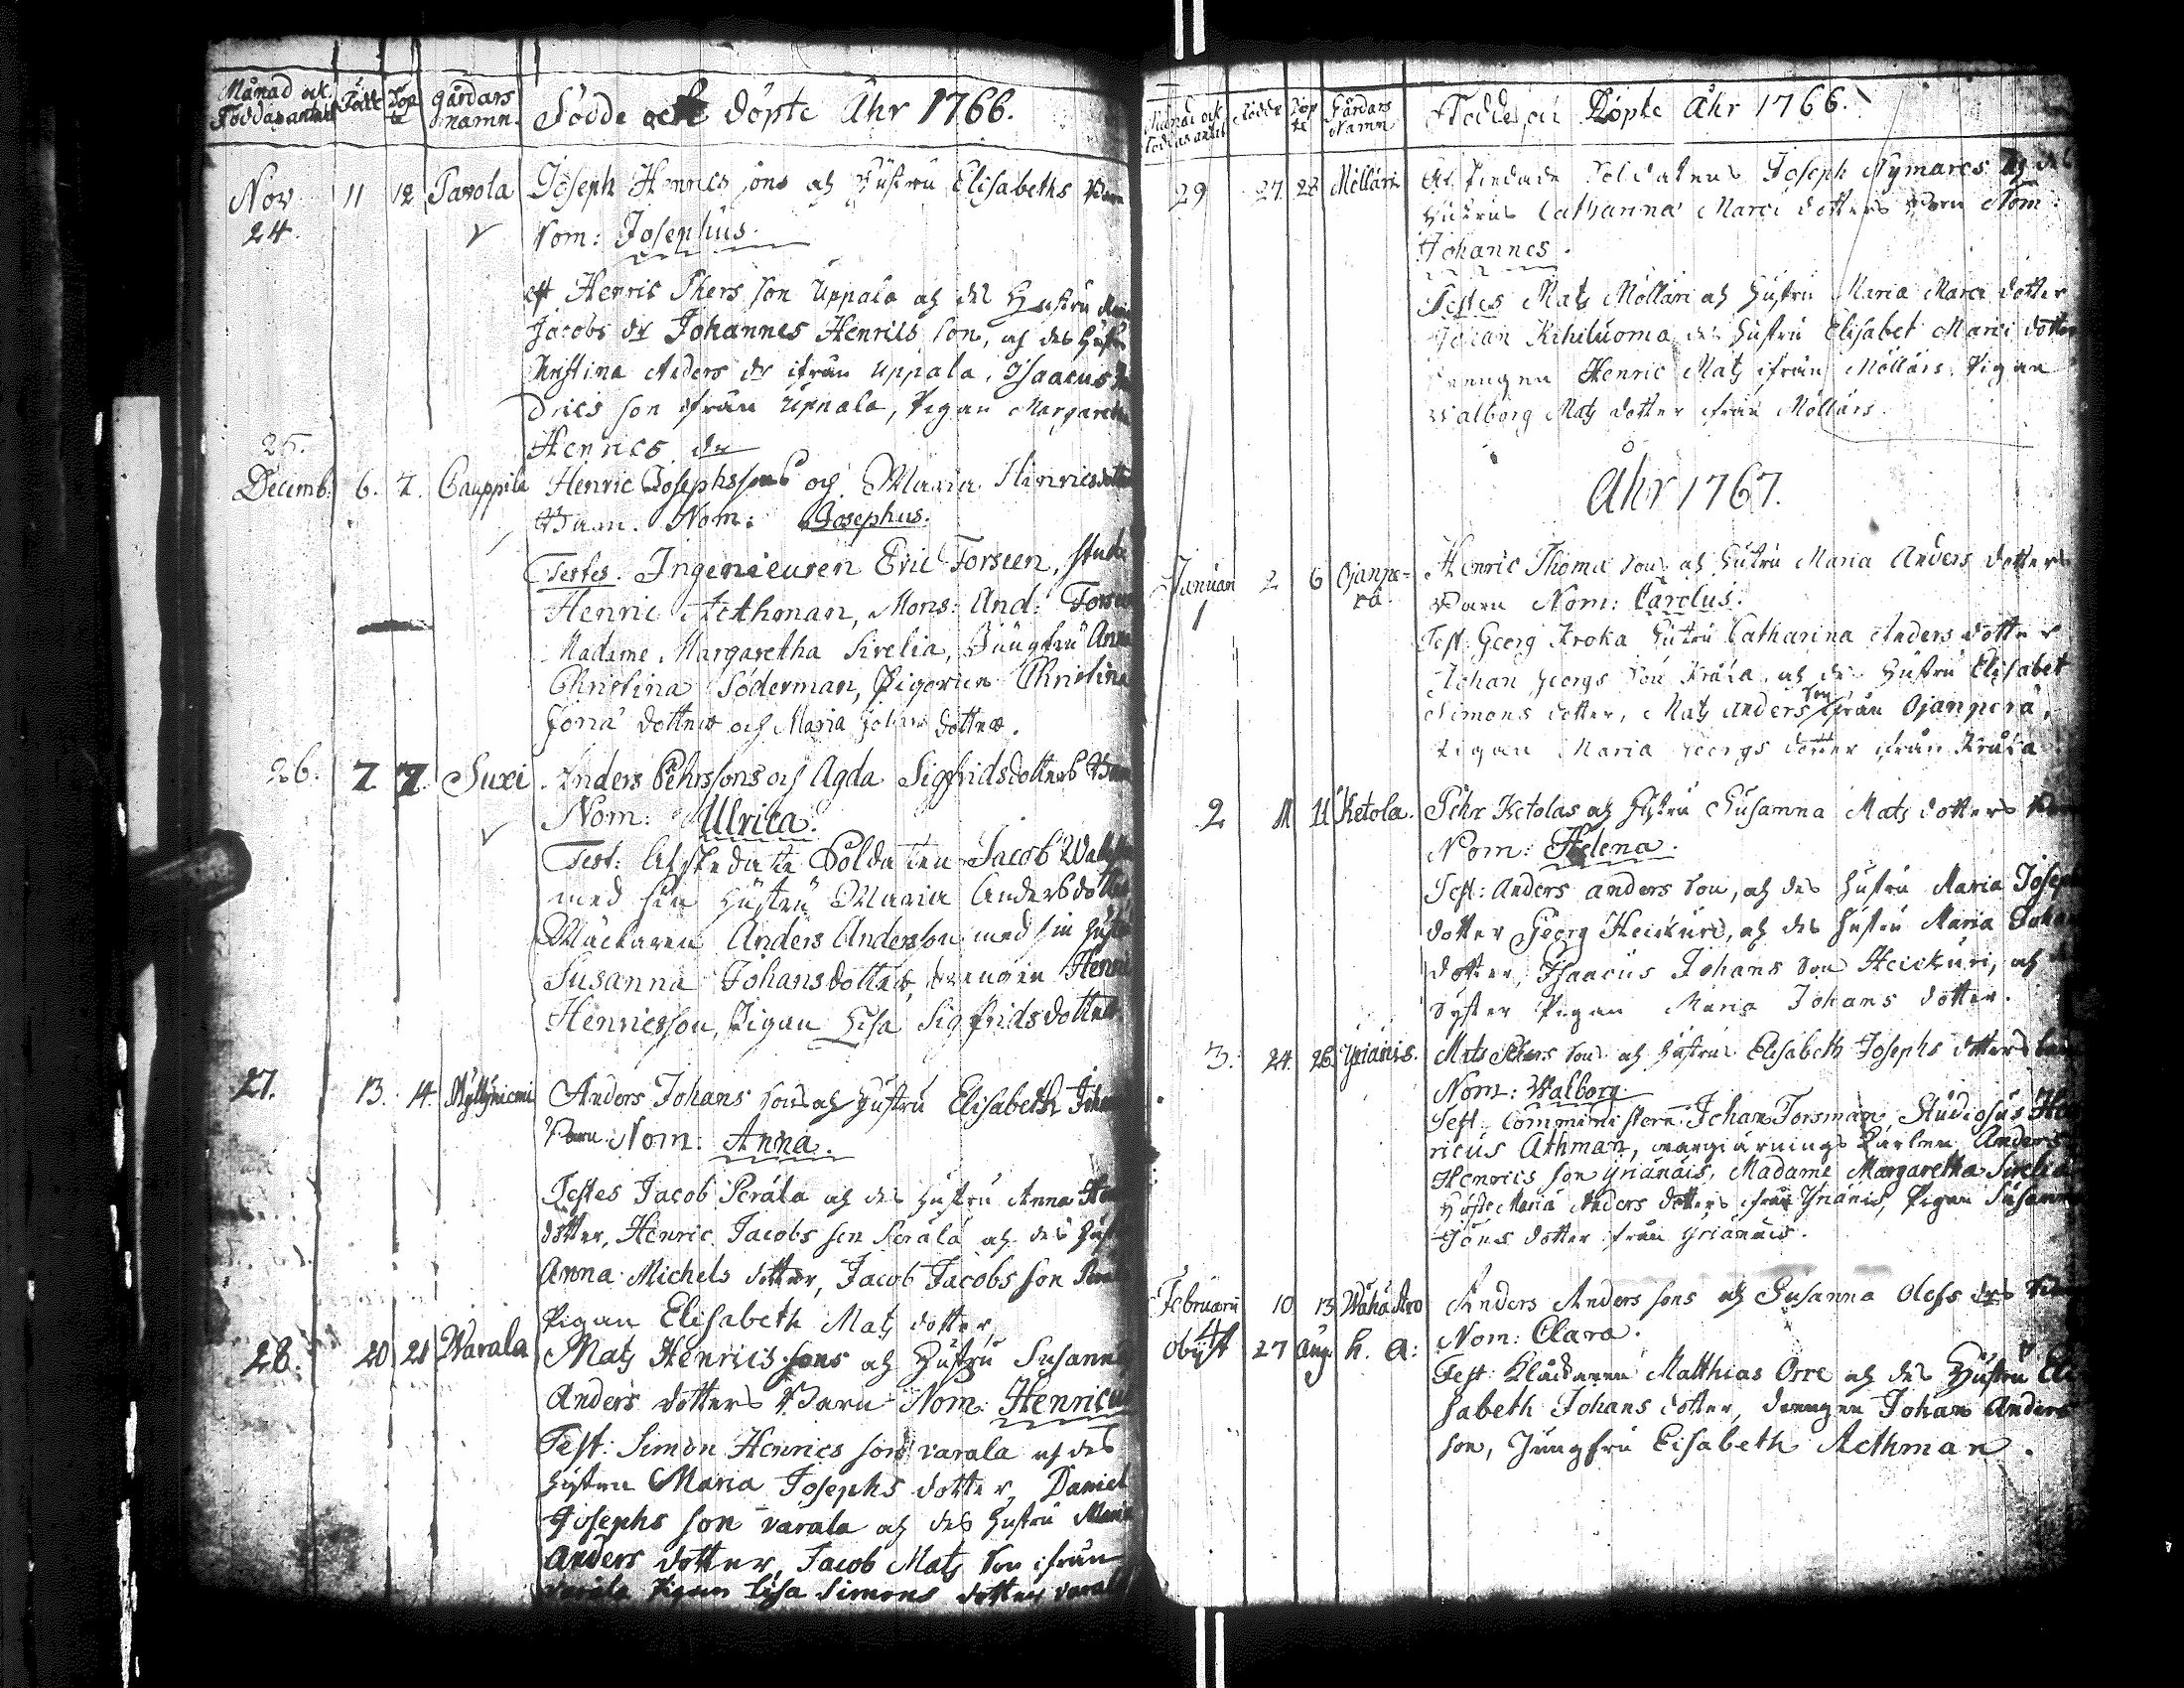 Månad och Födde Döp gårdars
Födas antal te namn. Födde och döpte Åhr 1766.
Nov 11 12 Parola Joseph Henrics sons och Hustru Elisabeths Barn
24 Nom: Josephus.
Henric Phers son Uppala och des Hustru
Jacobs dr Johannes Henrics son, och des Hustru
Christina Anders dr ifrån Uppala, Isaacus
drics son ifrån Uppala, Pigan Margaretha
Henrics dr
25.
Decemb. 6. 7. Cauppila Henric Josephssons och Maria Henricsdotters
Barn. Nom: Josephus.
Testes. Ingenieuren Eric Forseen, Stud.
Henric Aethman, Mons: And: Forseen
Madame Margaretha Sirelia, Jungfru Anna
Christina Söderman, Pigorna Christina
Jona dotter och Maria Johans dotter.
26. 7. 7. Suxi Anders Pehrssons och Agda Sigfridsdotters Barn
Nom: Ulrica.
Test: Afskedade Soldaten Jacob
med sin Hustru Maria Andersdotter,
Anders Andersson med sin Hustru
Susanna Johansdotter, drengen Henric
Henricsson, Pigan Lisa Sigfridsdotter.
27. 13. 14. Myllyniemi Anders Johans sons och Hustru Elisabeth Johans
Barn Nom: Anna.
Testes Jacob Perälä och des Hustru Anna
dotter, Henric Jacobs son Perälä och des Hustru
Anna Michels dotter, Jacob Jacobs son
Pigan Elisabeth Mats dotter,
28. 20 21 Warala Mats Henrics sons och Hustru Susanna
Anders dotters Barn Nom: Henricus
Test: Simon Henrics son Varala och des
Hustru Maria Josephs dotter, Daniel
Josephs son Varala och des Hustru Maria
Anders dotter, Jacob Mats son ifrån
Varala Pigan Lisa Simons dotter Varala
Månad och Födde Döp Gårdars
Födas antal te Namn Födde och Döpte Åhr 1766.
29 27. 28 Mölläri Afskedade Soldatens Joseph Nymarcs och des
Hustrus Catharina Marci dotters Barn Nom:
Johannes.
Testes Mats Mölläri och Hustru Maria Marci dotter
Johan Kihiluoma des Hustru Elisabet Marci dotter
Drengen Henric Mats ifrån Mölläris, Pigan
Walborg Mats dotter ifrån Mölläris.
Åhr 1767.
Januari 2 6 Ojanpe= Henric Thomæ sons och Hustru Maria Anders dotters
1 rä. Barn Nom: Carolus.
Test: Georg Kroka Hustru Catharina Anders dotter
Johan Georgs son och des Hustru Elisabet
Simons dotter, Mats Anders son ifrån Ojanperä,
Pigan Maria Georgs dotter ifrån
2 11 11 Ketola. Pehr Ketolas och Hustru Susanna Mats dotters Barn
Nom: Helena.
Test: Anders Anders son, och des Hustru Maria Josephs
dotter Georg Heickuri, och des Hustru Maria Johans
dotter, Isaacus Johans son Heickuri, och
Syster Pigan Maria Johans dotter.
3. 24. 26. Yrjänis. Mats Phers sons och Hustrus Elisabeth Josephs dotters barn
Nom: Walborg.
Test: Comministern: Johan Forsman, Studiosus Hen
ricus Athman, Anders
Henrics son Yrjänäis, Madame Margaretha Sirelia
Hustr Maria Anders dotters ifrån Yrjänis, Pigan Susanna
Jöns dotter från Yrjänäis.
Februarii 10 13 Wähä Aro Anders Anders sons och Susanna Olofs drs Barn
4 Nom: Clara.
obijt 27 Aug. h. a:
Test: Klåckaren Matthias Orre och des Hustru Eli
sabeth Johans dotter, drengen Johan Anders
son, Jungfru Elisabeth Aethman.